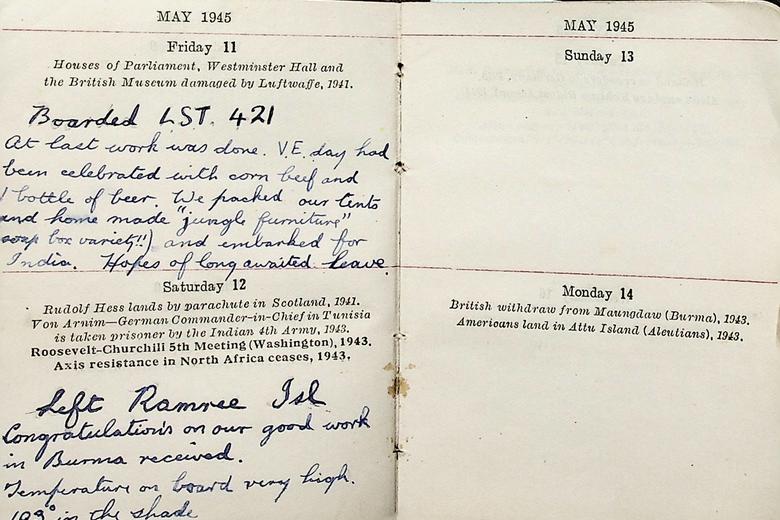 MAY 1945
Friday 11
Houses of Parliament, Westminster Hall and
the British Museum damaged by Luftwaffe, 1941.
Boarded LST. 421
At last work was done. V.E. day had
been celebrated with corn beef and
1 bottle of beer. We packed our tents
and home made "jungle furniture"
soap box variety!!) and embarked for
India. Hopes of long awaited leave.
Saturday 12
Rudolf Hess lands by parachute in Scotland, 1941.
Von Arnim—German Commander-in-Chief in Tunisia
is taken prisoner by the Indian 4th Army, 1943.
Roosevelt-Churchill 5th Meeting (Washington), 1943.
Axis resistance in North Africa ceases, 1943.
Left Ramree Isl
Congratulations on our good work
in Burma received.
Temperature on board very high.
in the shade
MAY 1945
Sunday 13
Monday 14
British withdraw from Maungdaw (Burma), 1943.
Americans land in Attu Island (Aleutians), 1943.